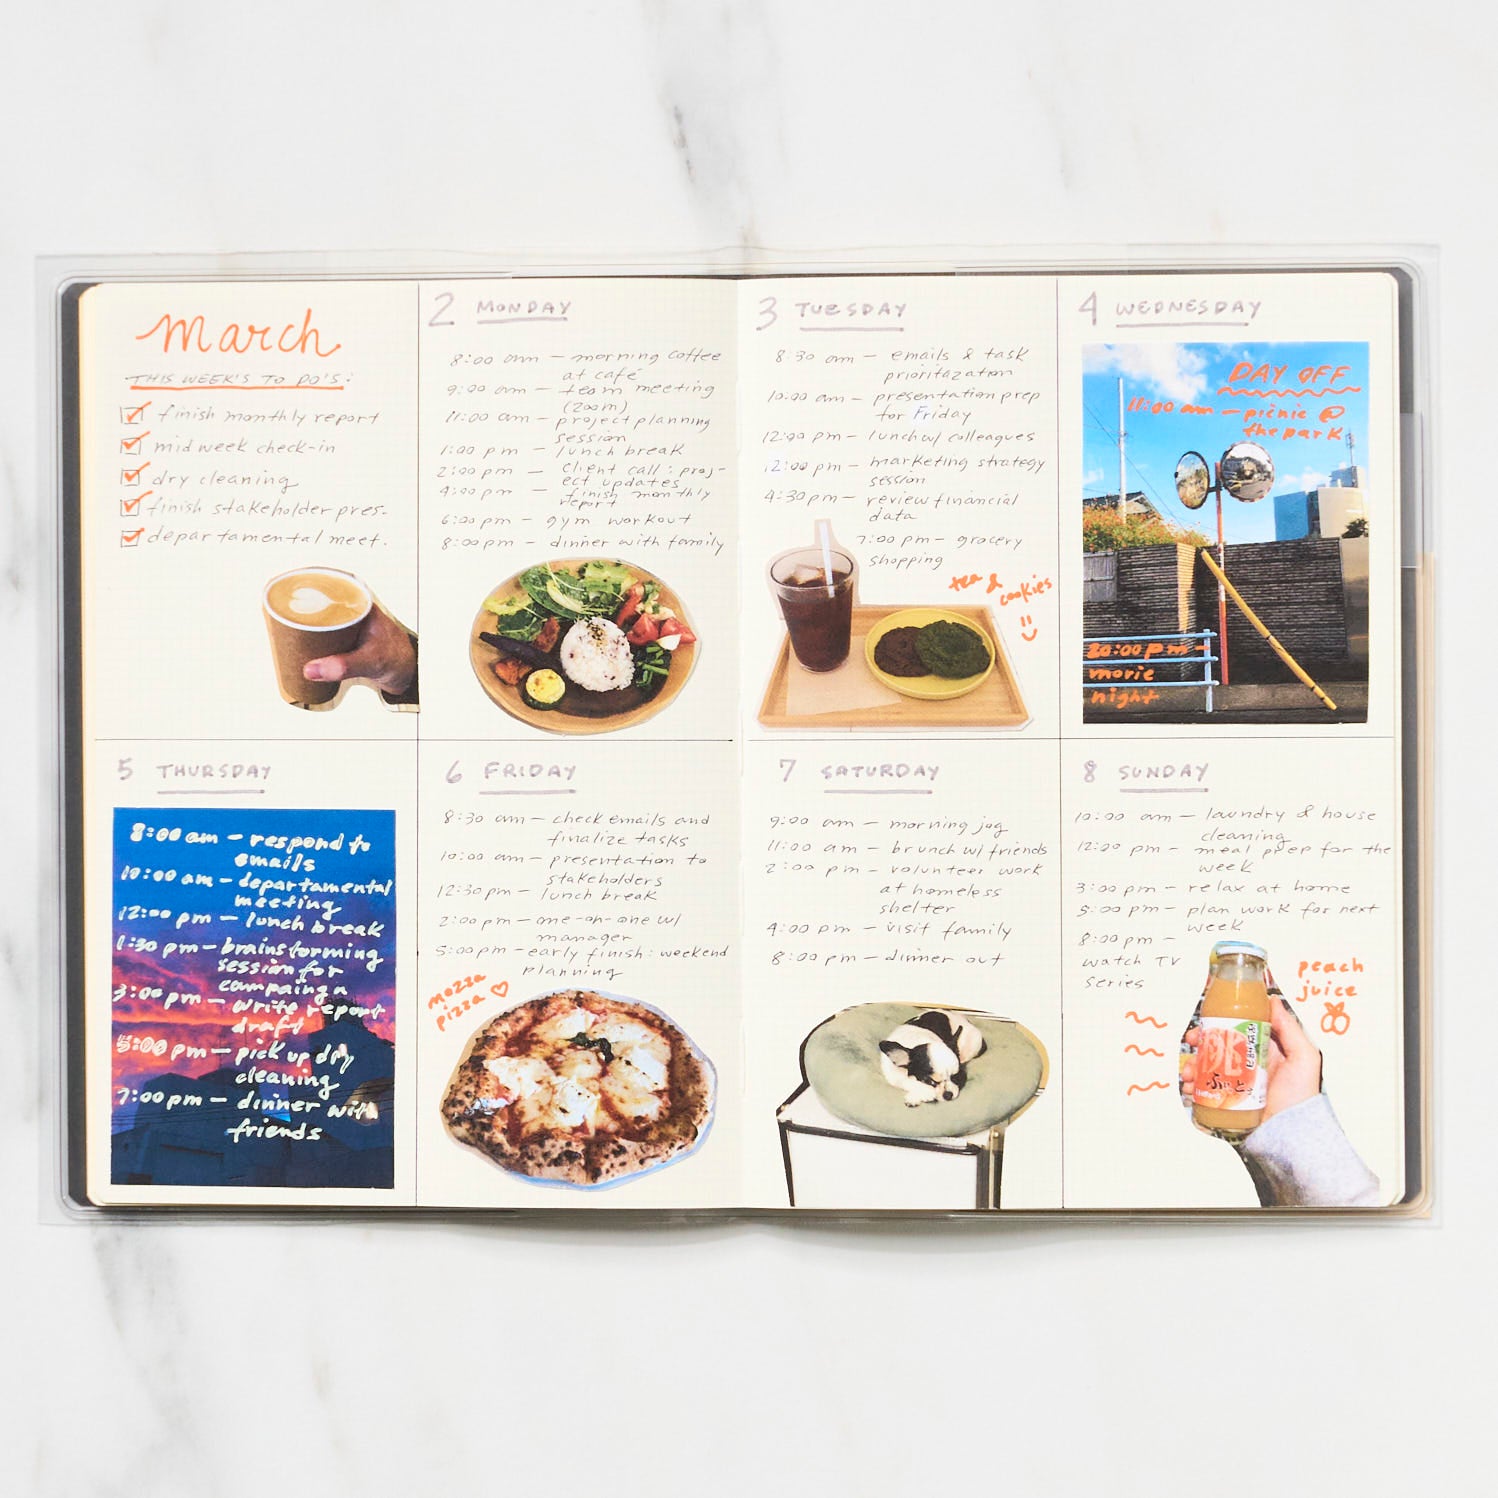 March
THIS WEEK'S TO DO'S:
finish monthly report
mid week check-in
dry cleaning
finish stakeholder pres-
departamental meet.
2 MONDAY
8:00 am - morning coffee
at café
9:00 am - team meeting
(zoom)
11:00 am - project planning
session
1:00 pm - lunch break
2:00 pm - client call: proj-
ect updates
4:00 pm - finish monthly
report
6:00 pm - gym workout
8:00 pm - dinner with family
3 TUESDAY
8:30 am - emails & task
prioritazation
10:00 am - presentation prep
for Friday
12:00 pm - lunch w/ colleagues
12:00 pm - marketing strategy
session
4:30 pm - review financial
data
7:00 pm - grocery
shopping
tea &
cookies
4 WEDNESDAY
DAY OFF
11:00 am - picnic @
the park
20:00 pm -
movie
night
5 THURSDAY
8:00 am - respond to
emails
10:00 am - departamental
meeting
12:00 pm - lunch break
1:30 pm - brainstorming
session for
campaingn
3:00 pm - write report
draft
5:00 pm - pick up dry
cleaning
7:00 pm - dinner with
friends
6 FRIDAY
8:30 am - check emails and
finalize tasks
10:00 am - presentation to
stakeholders
12:30 pm - lunch break
2:00 pm - one-on-one w/
manager
5:00 pm - early finish: weekend
planning
mozza
pizza ♡
7 SATURDAY
9:00 am - morning jog
11:00 am - brunch w/ friends
2:00 pm - volunteer work
at homeless
shelter
4:00 pm - visit family
8:00 pm - dinner out
8 SUNDAY
10:00 am - laundry & house
cleaning
12:00 pm - meal prep for the
week
3:00 pm - relax at home
5:00 pm - plan work for next
week
8:00 pm -
watch TV
series
peach
juice
桃